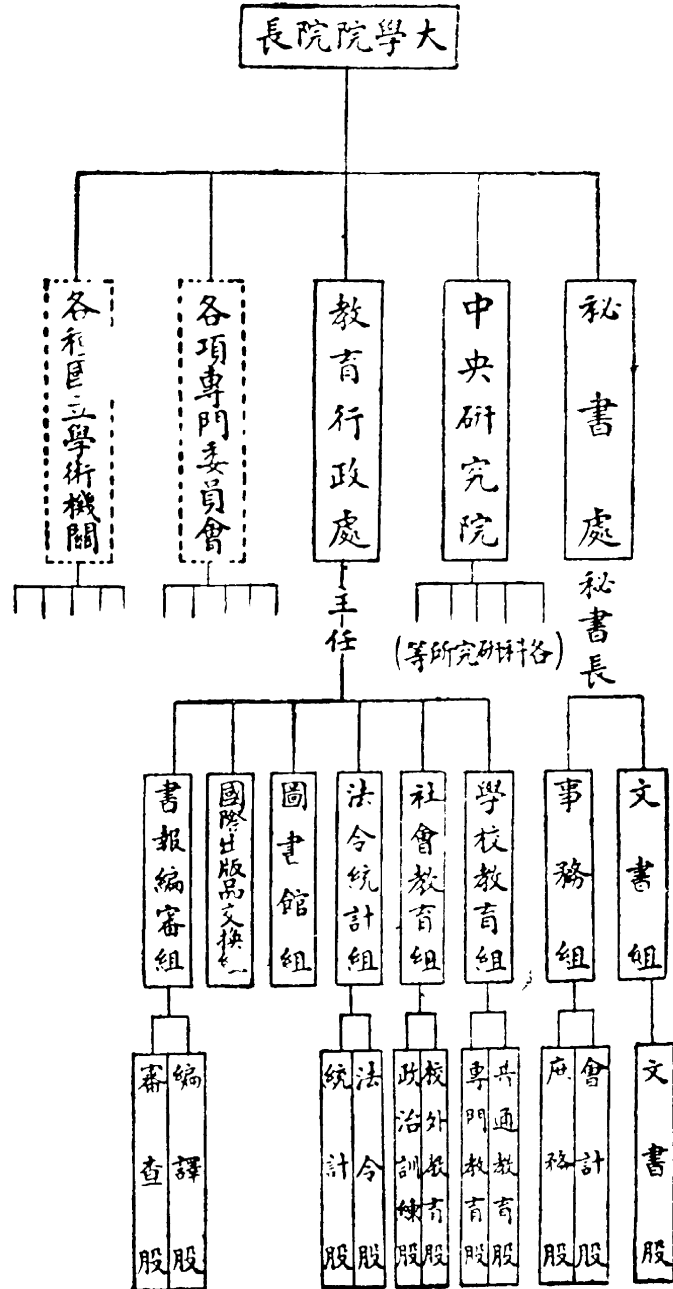 大學院院長
秘書處
中央研究院
教育行政處
各項專門委員會
各種國立學術機關
秘書長
(各科研究所等)
主任
文書組
事務組
學校教育組
社會教育組
法令統計組
圖書館組
國際出版品交換組
書報編審組
文書股
會計股
庶務股
共通教育股
專門教育股
校外教育股
政治訓練股
法令股
統計股
編譯股
審查股